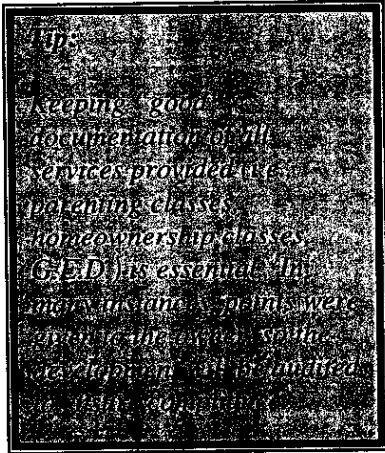 Tip:
Keeping good
documentation of all
services provided (i.e.
parenting classes,
homeownership classes,
G.E.D.) is essential. In
many instances, points were
given to the
development will be audited